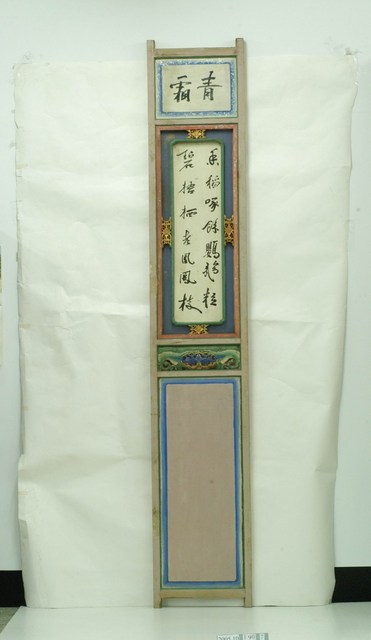 青霜
香稻啄餘鸚鵡粒
碧梧栖老鳳凰枝